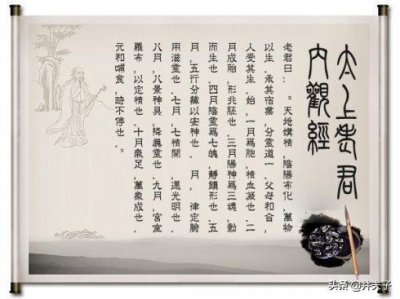 太上老君
內觀經
老君曰：。天地媾精，陰陽布化，萬物
以生。承其宿業，分靈道一。父母和合，
人受其生。始，一月爲胞，精血凝也。二
月成胎，形兆胚也。三月陽神爲三魂，動
而生也。四月陰靈爲七魄，靜鎮形也。五
月，五行分藏以安神也。 月，律定腑
用滋靈也。七月，七精開，通光明也。
八月，八景神具，降真靈也。九月，宮室
羅布，以定精也。十月氣足，萬象成也。
元和哺食，時不停也。
头条 @井夫子